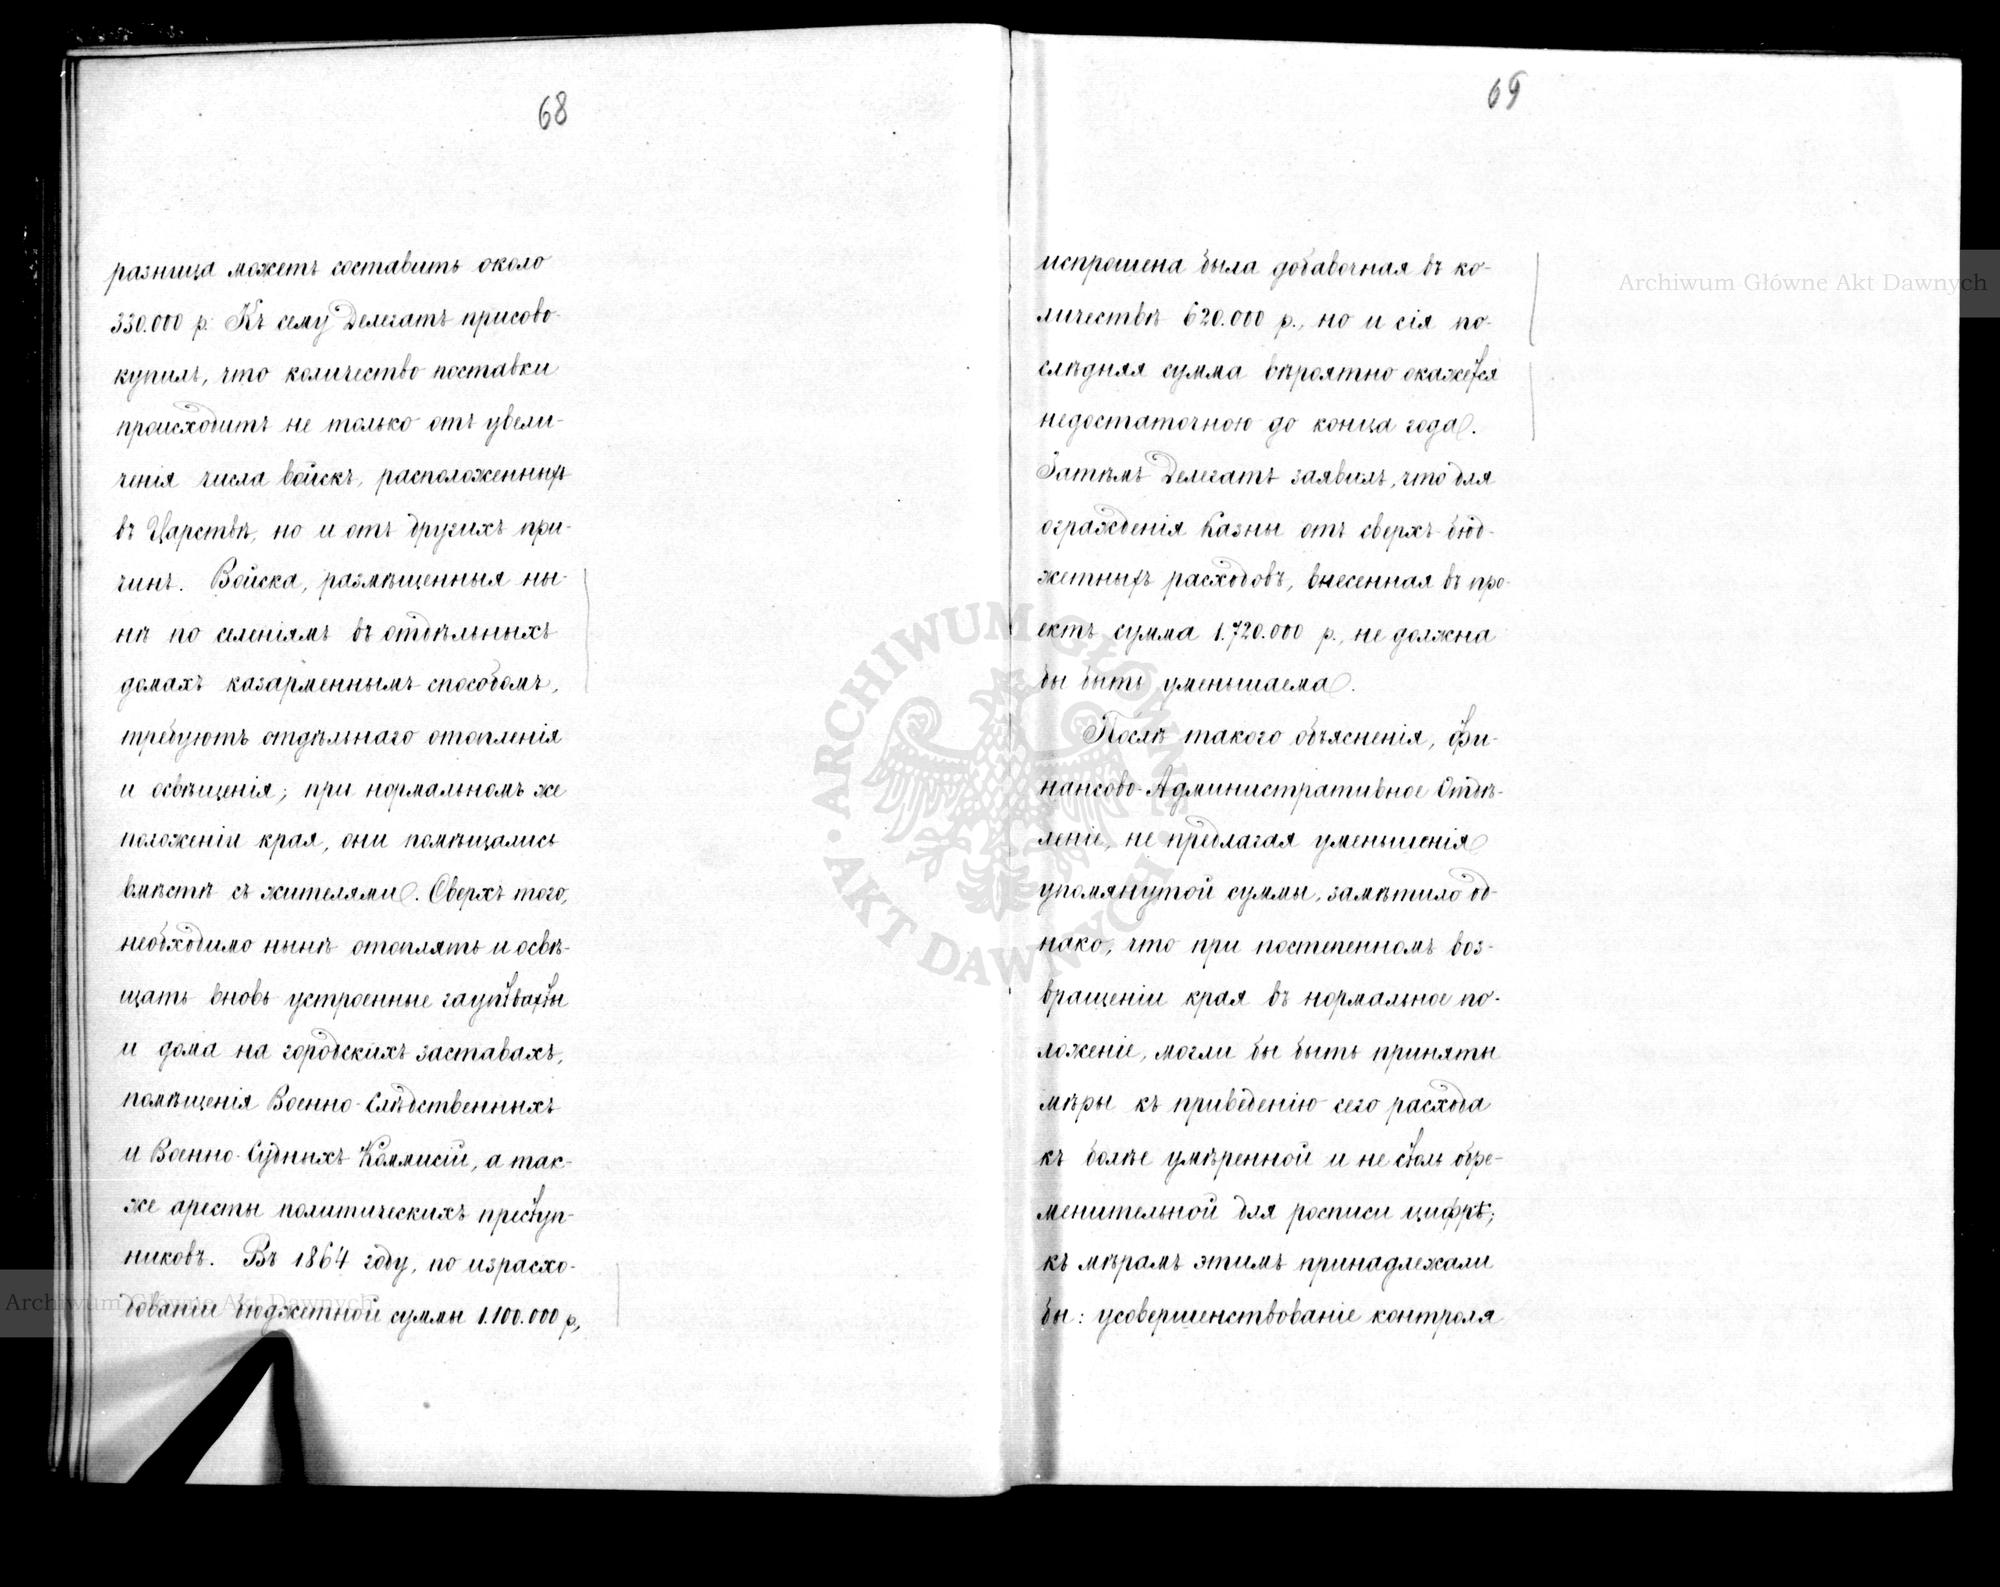 68
разница можетъ составить около
330.000 р. Къ сему Делегатъ присово-
купилъ, что количество поставки
происходитъ не только отъ увели-
ченія числа войскъ, расположенныхъ
въ Царствѣ, но и отъ другихъ при-
чинъ. Войска, размѣщенныя ны-
нѣ по селеніямъ въ отдѣльныхъ
домахъ казарменнымъ способомъ,
требуютъ отдѣльнаго отопленія
и освѣщенія; при нормальномъ же
положеніи края, они помѣщались
вмѣстѣ съ жителями. Сверхъ того,
необходимо нынѣ отоплять и освѣ-
щать вновь устроенные гауптвахты
и дома на городскихъ заставахъ,
помѣщенія Военно-Слѣдственныхъ
и Военно-Судныхъ Коммисій, а так-
же аресты политическихъ преступ-
никовъ. Въ 1864 году, по израсхо-
дованіи бюджетной суммы 1.100.000 р,
69
испрошена была добавочная въ ко-
личествѣ 620.000 р., но и сія по-
слѣдняя сумма вѣроятно окажется
недостаточною до конца года.
Затѣмъ Делегатъ заявилъ, что для
огражденія Казны отъ сверхъ-бюд-
жетныхъ расходовъ, внесенная въ про-
ектъ сумма 1.720.000 р., не должна
бы быть уменьшаема.
Послѣ такого объясненія, Фи-
нансово-Административное Отдѣ-
леніе, не предлагая уменьшенія
упомянутой суммы, замѣтило од-
нако, что при постепенномъ воз-
вращеніи края въ нормальное по-
ложеніе, могли бы быть приняты
мѣры къ приведенію сего расхода
къ болѣе умѣренной и не столь обре-
менительной для росписи цифрѣ;
къ мѣрамъ этимъ принадлежали
бы: усовершенствованіе контроля
Archiwum Główne Akt Dawnych
ARCHIWUM GŁÓWNE • AKT DAWNYCH •
Archiwum Główne Akt Dawnych